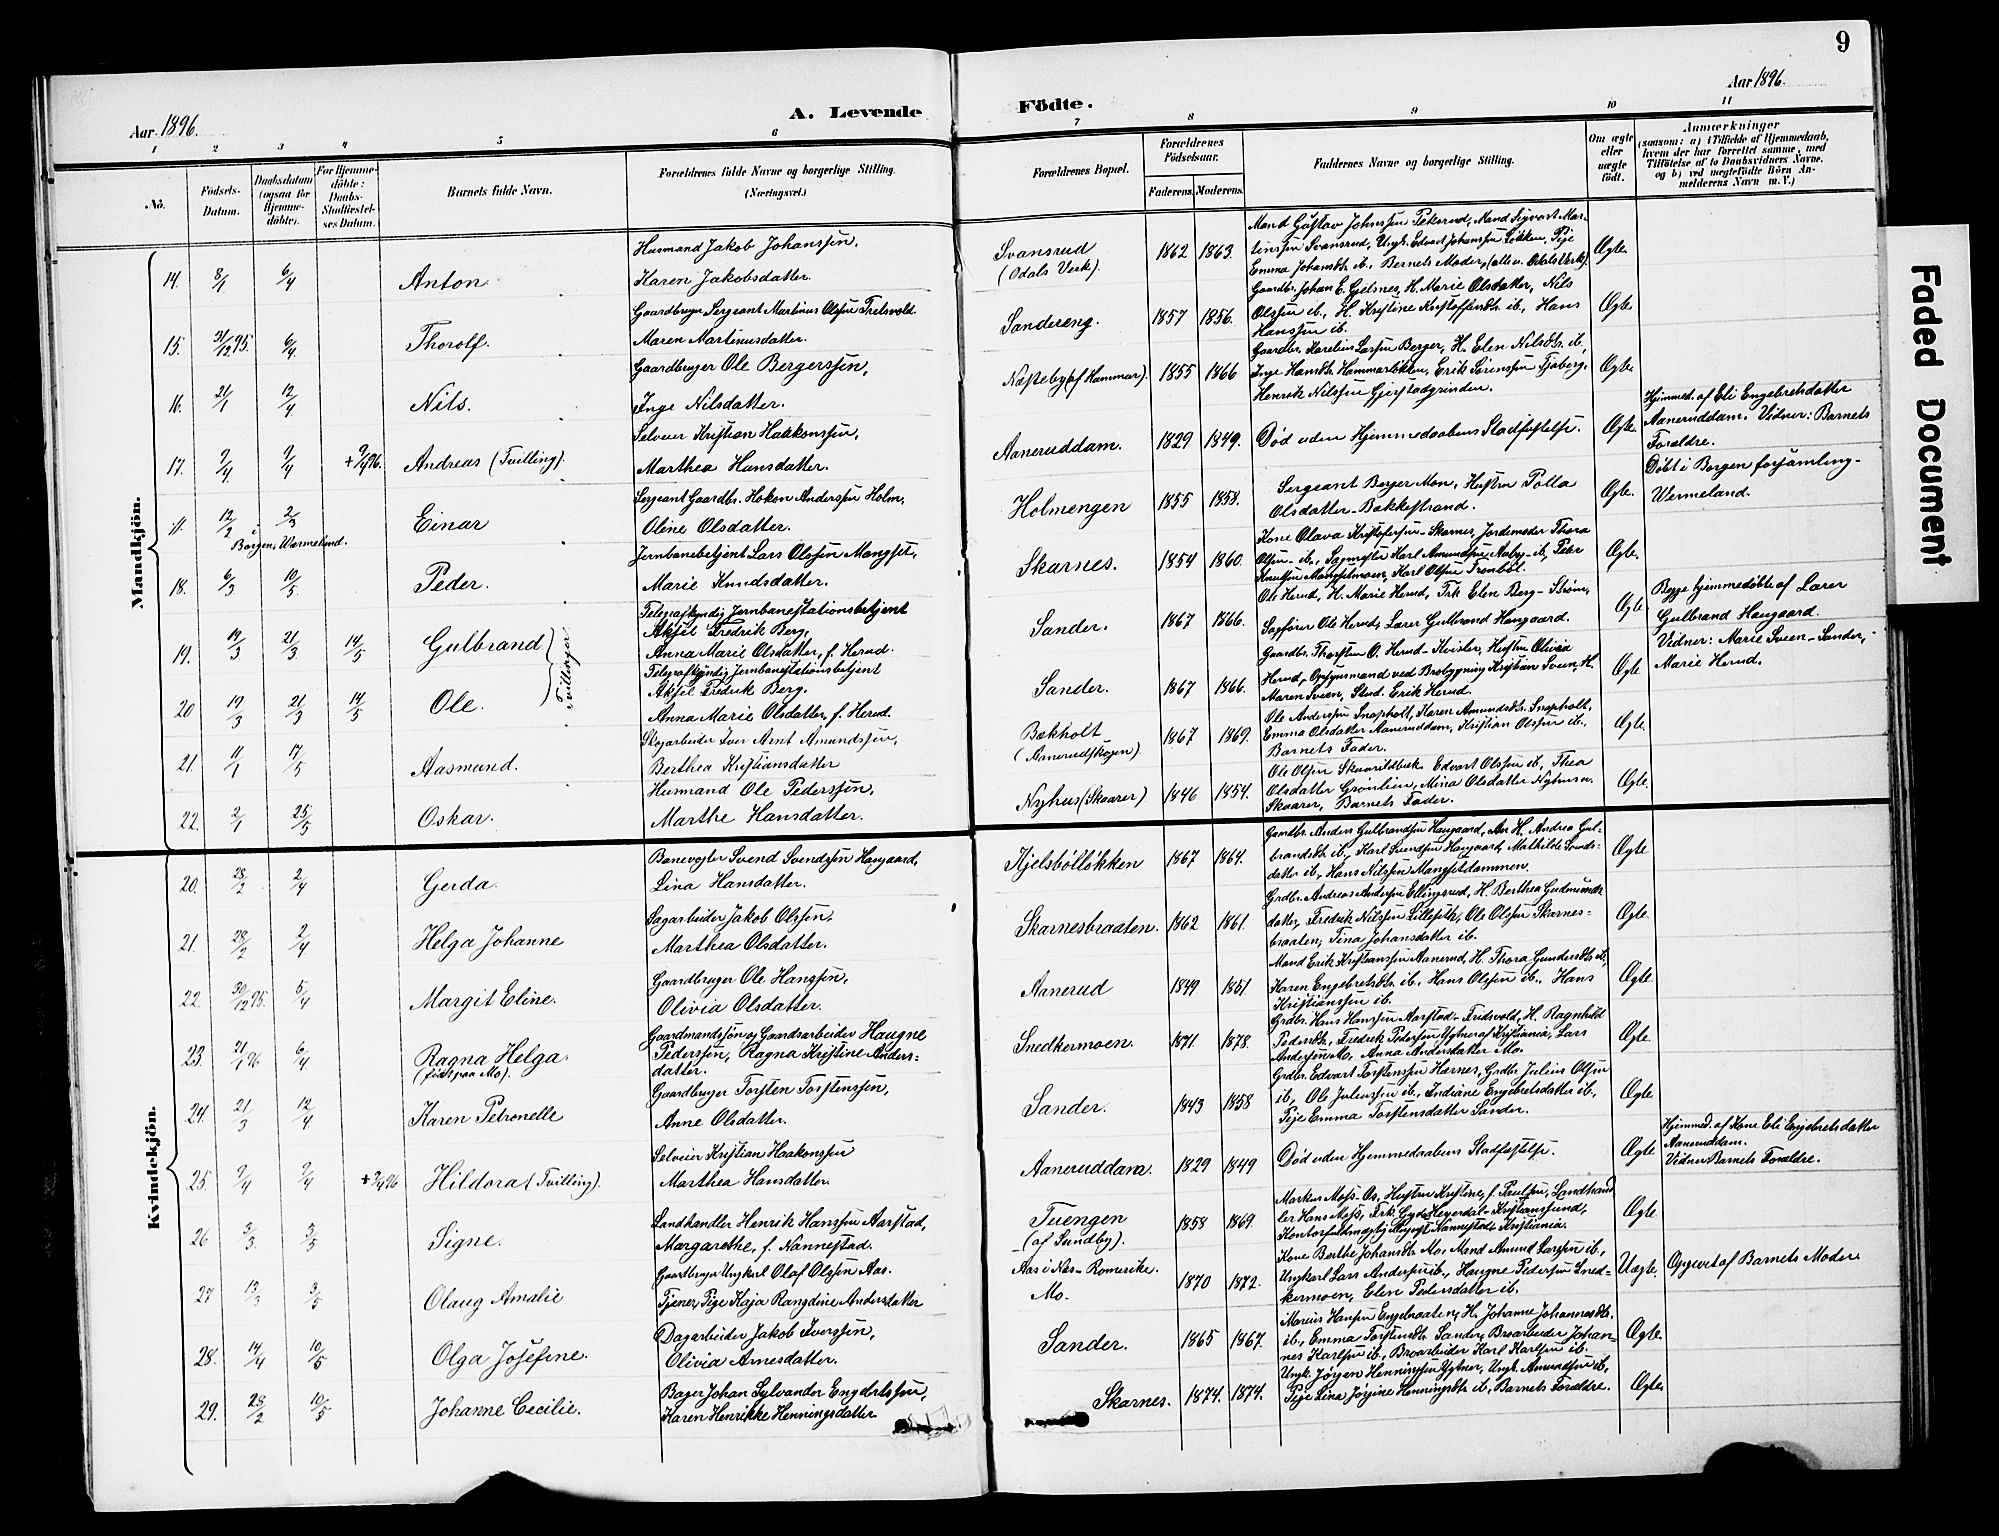 9
Aar 1896.
A. Levende
Födte.
Aar 1896.
1 2 3 4 5 6 7 8 9 10 11
No.
Födsels-Datum.
Daabsdatum (ogsaa for Hjemmedöbte).
For Hjemmedöbte: Daabs-Stadfæstelses Datum.
Barnets fulde Navn.
Forældrenes fulde Navne og borgerlige Stilling. (Næringsvei.)
Forældrenes Bopæl.
Forældrenes Födselsaar.
Faderens. Moderens.
Faddernes Navne og borgerlige Stilling.
Om ægte eller uægte födt.
Anmærkninger
(saasom: a) i Tilfælde af Hjemmedaab, hvem der har forrettet samme, med Tilföielse af to Daabsvidners Navne. og b) ved uægtefödte Börn Anmelderens Navn m. V.)
Mandkjön.
14. 8/1 6/4 Anton
Husmand Jakob Johanssen,
Karen Jakobsdatter.
Svansrud (Odals Verk). 1862 1863.
Mand Gustav Johnssen Pekerud, Mand Sigvart Martinssen Svansrud, Ungk. Edvart Johanssen Løkken, Pige
Emma Johansdtr ib., Barnets Moder, (alle v. Odals Verk). Ægte.
15. 31/12 95. 6/4. Thorolf.
Gaardbruger Sergeant Martinus Olssen Fretsvold.
Maren Martinusdatter.
Sandereng. 1857 1856.
Gaardbr. Johan E. Gilsnes, H. Marie Olsdatter, Nils
Olssen ib., H. Kristine Kristoffersdtr. ib., Hans
Hanssen ib. Ægte
16. 21/1 12/4 Nils.
Gaardbruger Ole Bergerssen,
Inge Nilsdatter.
Næsteby (af Hammar). 1855 1866
Gaardbr. Karelius Larssen Berger, H. Elen Nilsdtr. ib,
Inge Hansdtr. Hammarløkken, Erik Sørenssen Fjøberg,
Henrik Nilssen Gjerstadgrinden. Ægte.
17. 9/4. 9/4 +9/4 96. Andreas (Tvilling).
Selveier Kristian Haakonssen,
Marthea Hansdatter.
Aaneruddam. 1829 1849.
Død uden Hjemmedaabens Stadfestelse. Ægte.
Hjemmed. af Eli Engebretsdatter
Aaneruddam. Vidner: Barnets
Forældre.
11. 12/2 2/3 i Borgen, Wærmeland. Einar
Sergeant Gaardbr. Hakon Anderssen Holm,
Oline Olsdatter.
Holmengen 1855 1858.
Sergeant Berger Mon, Hustru Polla
Olsdatter-Bakkestrand. Ægte.
Døbt i Borgen forsamling-
Wermeland.
18. 6/3 10/5. Peder.
Jernbanebetjent Lars Olssen Mangset,
Marie Knudsdatter.
Skarnes. 1854 1860.
Kone Olava Kristofersen-Skarnes, Jordemoder Thora
Olsen-ib., Sagmester Karl Amundsen Aaby-ib, Peter
Knutsen Mangselmoen, Karl Olsen Trønbøl. Ægte.
19. 19/3 21/3. 14/5 Gulbrand
Telegrafkyndig Jernbanestationsbetjent
Aksel Fredrik Berg,
Anna Marie Olsdatter, f. Herud.
Sander. 1867 1866.
Ole Herud, H. Marie Herud, Frk Elen Berg-Strøm,
Sagfører Ole Herud, Lærer Gulbrand Haugaard. Ægte
Begge hjemmedøbte af Lærer
Gulbrand Haugaard.
Vidner: Marie Sveen-Sander,
Marie Herud.
20 19/3 21/3 14/5 Ole. Tvillinger
Telegrafkyndig Jernbanestationsbetjent
Aksel Fredrik Berg.
Anna Marie Olsdatter, f. Herud.
Sander. 1867 1866.
Gaardbr. Thorsten O. Herud-Kvisler, Hustru Olivia
Herud, Opsynsmand ved Brobygning Kristian Sveen, H.
Maren Sveen, Stud. Erik Herud. Ægte
21. 11/1 17/5 Aasmund.
Skogarbeider Iver Arnt Amundssen,
Berthea Kristiansdatter
Bakholt (Aanerudskogen) 1867 1869.
Ole Anderssen Snapholt, Karen Amundsdtr. Snapholt,
Emma Olsdatter Aaneruddam, Kristian Olssen ib.
Barnets Fader. Ægte
22. 2/1 25/5 Oskar.
Husmand Ole Pederssen,
Marthe Hansdatter.
Nyhus (Skaarer) 1846 1854.
Ole Olssen Skaarildbæk. Edvart Olssen ib, Thea
Olsdatter Grønlien, Mina Olsdatter Nyhus u.
Skaarer, Barnets Fader. Ægte.
Kvindekjön.
20. 28/2. 2/4 Gerda.
Banevogter Svend Svendsen Haugaard,
Lina Hansdatter.
Kjelsbølløkken 1867 1864.
Gaardbr. Anders Gulbrandsen Haugaard, H. Andrea Gulbrandsdtr. ib, Karl Svendsen Haugaard, Mathilde Svendsdatter ib., Hans Nilssen Mangsetdammen. Ægte
21. 28/2 2/4 Helga Johanne
Sagarbeider Jakob Olssen,
Marthea Olsdatter.
Skarnesbraaten. 1862 1861.
Grdbr. Andreas Anderssen Ellingsrud, H. Berthea Gudmundsdatter, Fredrik Nilssen Lilleseth, Ole Olssen Skarnesbraaten, Tina Johansdatter ib. Ægte.
22. 30/12 95. 5/4 Margit Eline.
Gaardbruger Ole Hanssen,
Olivia Olsdatter.
Aanerud 1849 1851
Mand Erik Kristianssen Aanerud, H. Thora Gundersdtr ib,
Karen Engebretsdtr. ib., Hans Olssen ib., Hans
Kristianssen ib. Ægte.
23. 21/1 96 6/4 Ragna Helga. (født paa Mo).
Gaardmandssøn og Gaardsarbeider Haugne
Pederssen, Ragna Kristine Andersdatter.
Snedkermoen. 1871. 1878.
Grdbr. Hans Hanssen Aarstad-Fredsvold, H. Ragnhild
Pedersdtr., Fredrik Pederssen Ygtner af Kristiania, Lars
Anderssen Mo, Anna Andersdatter Mo. Ægte.
24. 21/3 12/4 Karen Petronelle
Gaardbruger Torsten Torstenssen,
Anne Olsdatter.
Sander. 1843 1858
Grdbr. Edvart Torstenssen Hærnes, Grdbr Julius Olssen
ib, Ole Julussen ib., Indiane Engebretsdatter ib.,
Pige Emma Torstensdatter Sander. Ægte.
25. 9/4 9/4 +9/4 96 Hildora (Tvilling).
Selveier Kristian Haakonssen
Marthea Hansdatter.
Aaneruddam. 1829 1849
Død uden Hjemmedaabens Stadfæstelse. Ægte.
Hjemmed. af Kone Eli Engebretsdatter
Aaneruddam.
Vidner Barnets Forældre.
26 3/3 3/5 Signe.
Landhandler Henrik Hanssen Aarstad,
Margarethe, f. Nannestad.
Tuengen (af Sundby). 1858 1869
Markus Moss-Os, Hustru Kristine, f. Paulsen, Landhandler Hans Moss, Frk. Gyda Heyerdal-Kristianssund,
Kontorfuldmægtig Nannestad-Kristiania. Ægte
27 13/3 3/5 Olaug Amalie
Gaardbruger Ungkarl Olaf Olssen Aas.
Tjener, Pige Kaja Rangdine Andersdatter
Aas i Næs-Romerike.
Mo. 1870 1872.
Kone Berthe Johansdtr. Mo, Mand Amund Larssen ib.,
Ungkarl Lars Anderssen ib., Haugne Pederssen Snedkermoen, Eline Pedersdatter ib. Uægte.
Opgivet af Barnets Moder
28. 14/4 10/5 Olga Josefine.
Dagarbeider Jakob Iverssen,
Olivia Arnesdatter.
Sander. 1865 1867.
Marius Hansen Engebraaten, H. Johanne Johannesdtr.
ib., Emma Torstensdtr. Sander, Broarbeider Johannes Karlsen ib, Broarbeider Karl Karlsen ib. Ægte.
29. 28/2 10/5 Johanne Cecilie.
Bager Johan Sylvander Engebretssen,
Karen Henrikke Henningsdatter
Skarnes. 1874. 1874.
Ungk. Jørgen Henningsen Ygtner, Ungk. Amundssen ib,
Pige Lina Jørgine Henningsdtr ib, Barnets Forældre. Ægte.
Faded Document